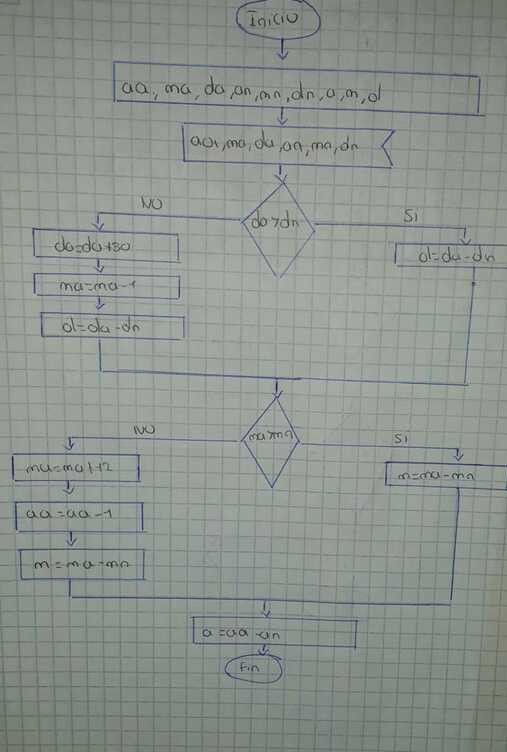 Inicio
aa, ma, da, an, mn, dn, a, m, d
aa, ma, da, an, mn, dn
da>dn
NO
Si
da=da+30
d=da-dn
ma=ma-1
d=da-dn
ma>mn
NO
Si
ma=ma+12
m=ma-mn
aa=aa-1
m=ma-mn
a=aa-an
Fin